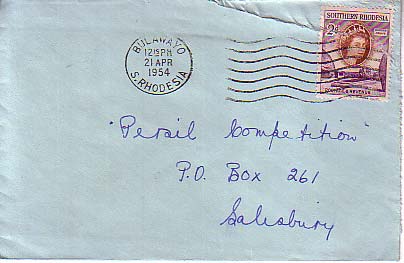 BULAWAYO
12 15 PM
21 APR
1954
S. RHODESIA
SOUTHERN RHODESIA
2d
POSTAGE & REVENUE
"Persil Competition"
P.O. Box 261
Salisbury